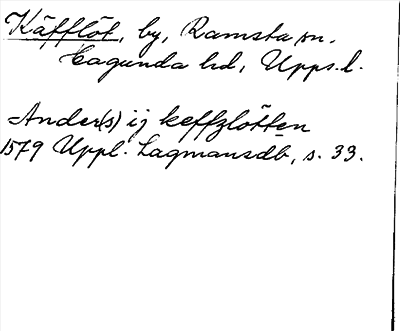 Käfflöt, by, Ramsta sn.
Hagunda hd, Upps. l.
Ander(s) ij keffzlötten
1579 Uppl. Lagmansdb, s. 33.